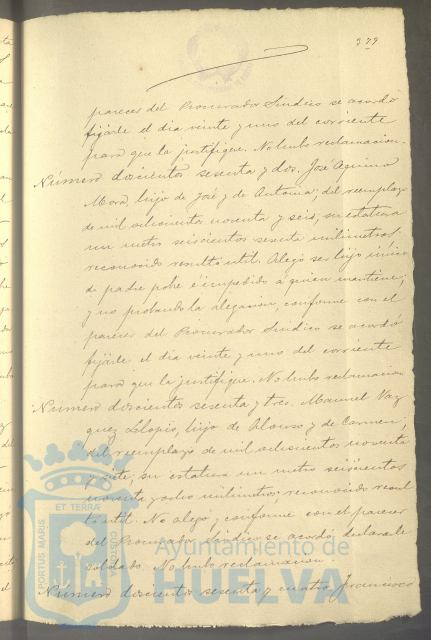 379
parecer del Procurador Síndico se acordó
fijarle el dia veinte y uno del corriente
para que la justifique. No hubo reclamacion.
Número doscientos sesenta y dos. José Aquino
Mora, hijo de José y de Antonia, del reemplazo
de mil ochocientos noventa y seis; su estatura
un metro seiscientos sesenta milimetros.
reconocido resultó util. Alegó ser hijo único
de padre pobre é impedido á quien mantiene;
y no probando la alegacion, conforme con el
parecer del Procurador Sindico se acordó
fijarle el dia veinte y uno del corriente
para que la justifique. No hubo reclamacion
Número doscientos sesenta y tres. Manuel Vaz
quez Llopis, hijo de Alonso y de Carmen,
del reemplazo de mil ochocientos noventa
y siete; su estatura un metro seiscientos
noventa y ocho milimetros; reconocido resul
tó util. No alegó; conforme con el parecer
del Procurador Sindico se acordó, declararle
soldado. No hubo reclamacion.
Número doscientos sesenta y cuatro Francisco
PORTUS MARIS
ET TERRÆ
CUSTODIA
Ayuntamiento de
HUELVA